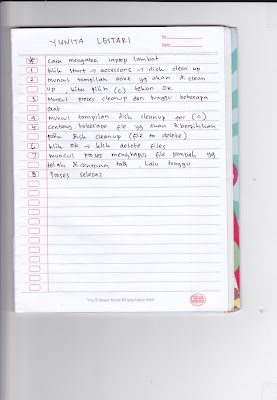 YUNITA LESTARI
No.
Date:
* Cara mengatasi laptop lambat
1 klik start → accessoris → disk clean up
2 muncul tampilan drive yg akan di clean
up, kita pilih (c) tekan ok
3 muncul proses cleanup dan tunggu beberapa
saat
4 muncul tampilan disk cleanup for (c)
centang beberapa file yg akan dibersihkan
disk cleanup (file to delete)
6 klik ok → klik delete files
7 muncul proses menghapus file sampah yg
telah di centang tadi, lalu tunggu
8 proses selesai
You'll never know till you have tried